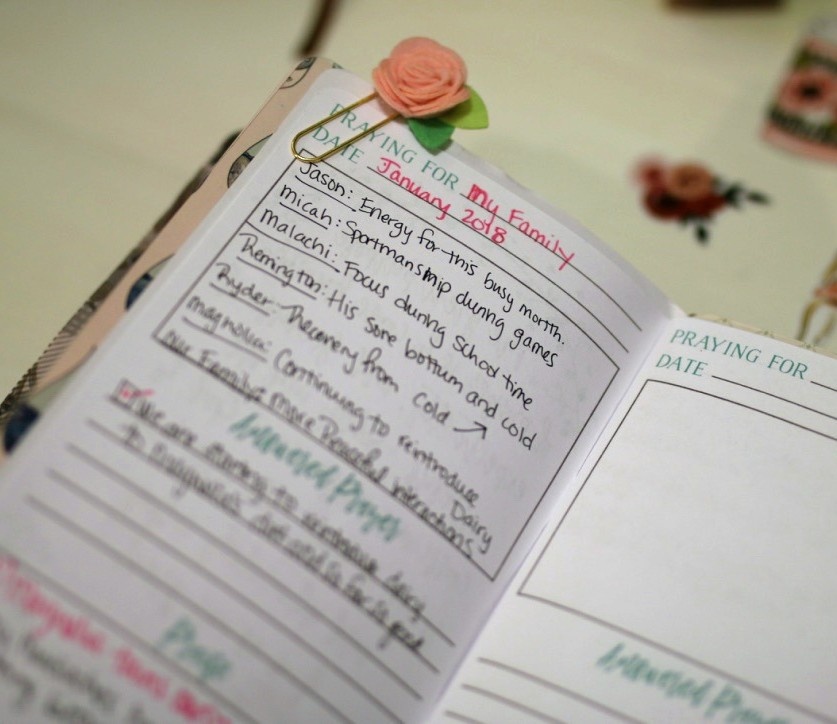 PRAYING FOR my Family
DATE January 2018
Jason: Energy for this busy month.
Micah: Sportmanship during games
Malachi: Focus during School time
Remington: His sore bottom and cold
Ryder: Recovery from cold ↗
Magnolia: Continuing to reintroduce
Dairy
Our Family: more Peaceful interactions
Answered Prayer
We are starting to reintroduce dairy
to Magnolia's diet and so far so good
Praise
PRAYING FOR
DATE
Answered Prayer